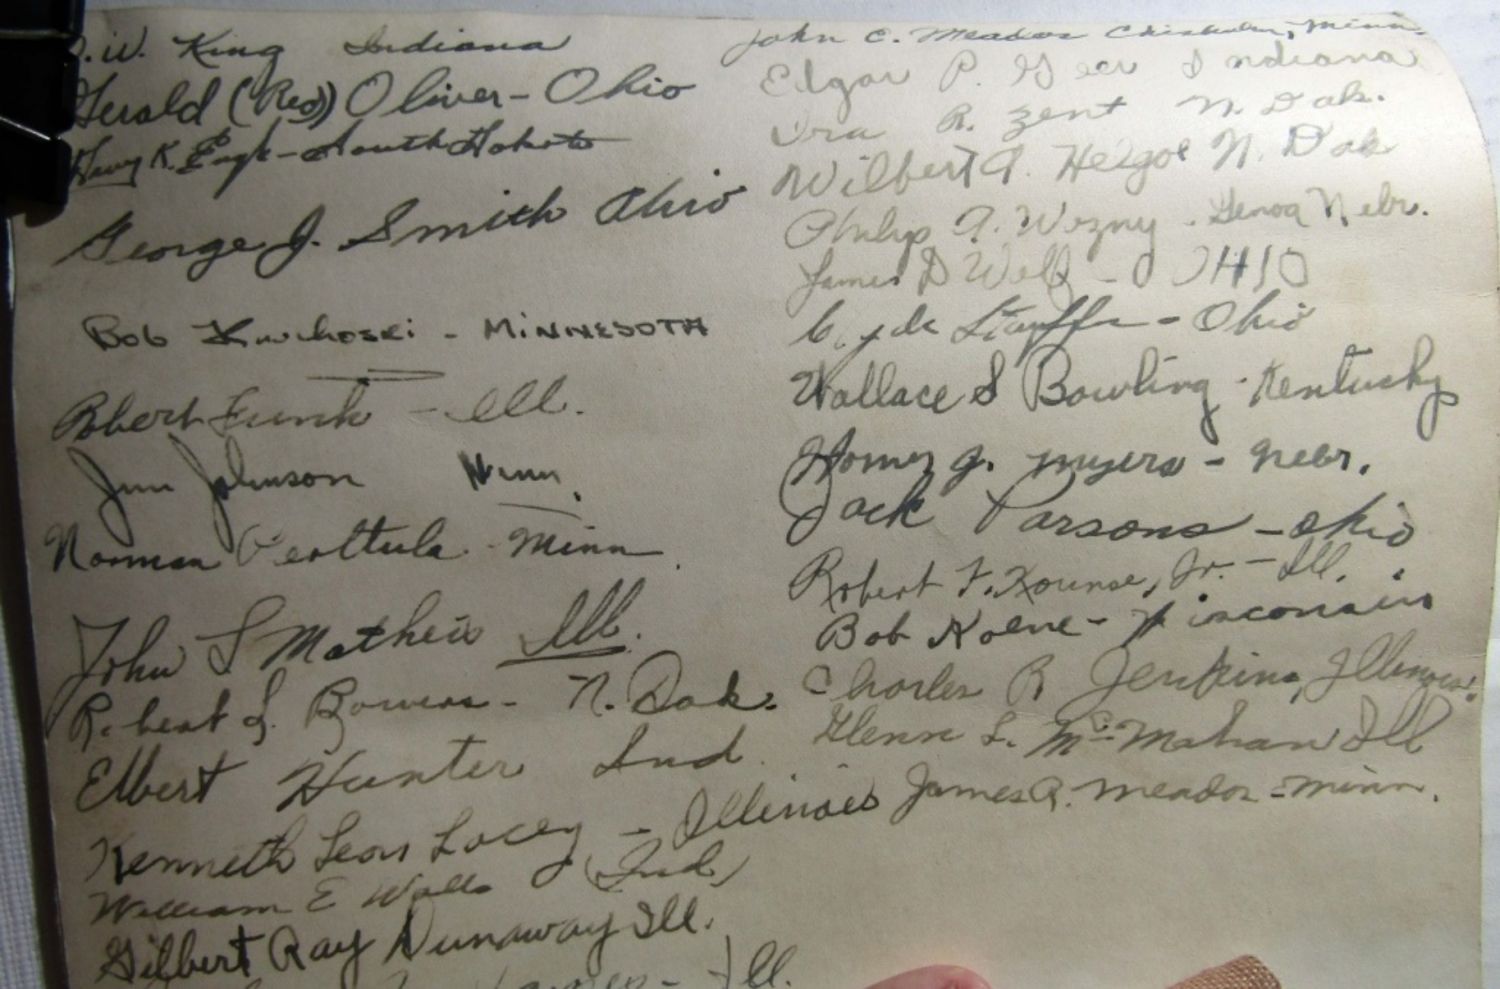 W. King Indiana
Gerald (Red) Oliver - Ohio
K. - South Dakota
George J. Smith Ohio
Bob - MINNESOTA
Robert Funk - Ill.
Jim Johnson Minn.
Norman Perttula - Minn.
John S Mathew Ill.
Robert L. Bowers - N. Dak.
Elbert Hunter Ind.
Kenneth Leon Locey - Illinois
William E Walls (Ind.)
Gilbert Ray Dunaway Ill.
- Ill.
John C. Meados Chisholm, Minn.
Edgar P. Geer Indiana
Ira R. Zent N. Dak.
Wilbert A. Helgoe N. Dak
Philip A. Wozny - Genoa Nebr.
James D Wolf - OHIO
Clyde - Ohio
Wallace S Bowling - Kentucky
Homer J. Myers - Nebr.
Jack Parsons - Ohio
Robert F. Kounse, Jr. - Ill.
Bob Koene - Wisconsin
Charles R Jenkins, Illinois.
Glenn L. McMahan Ill
James R. Meados - Minn.